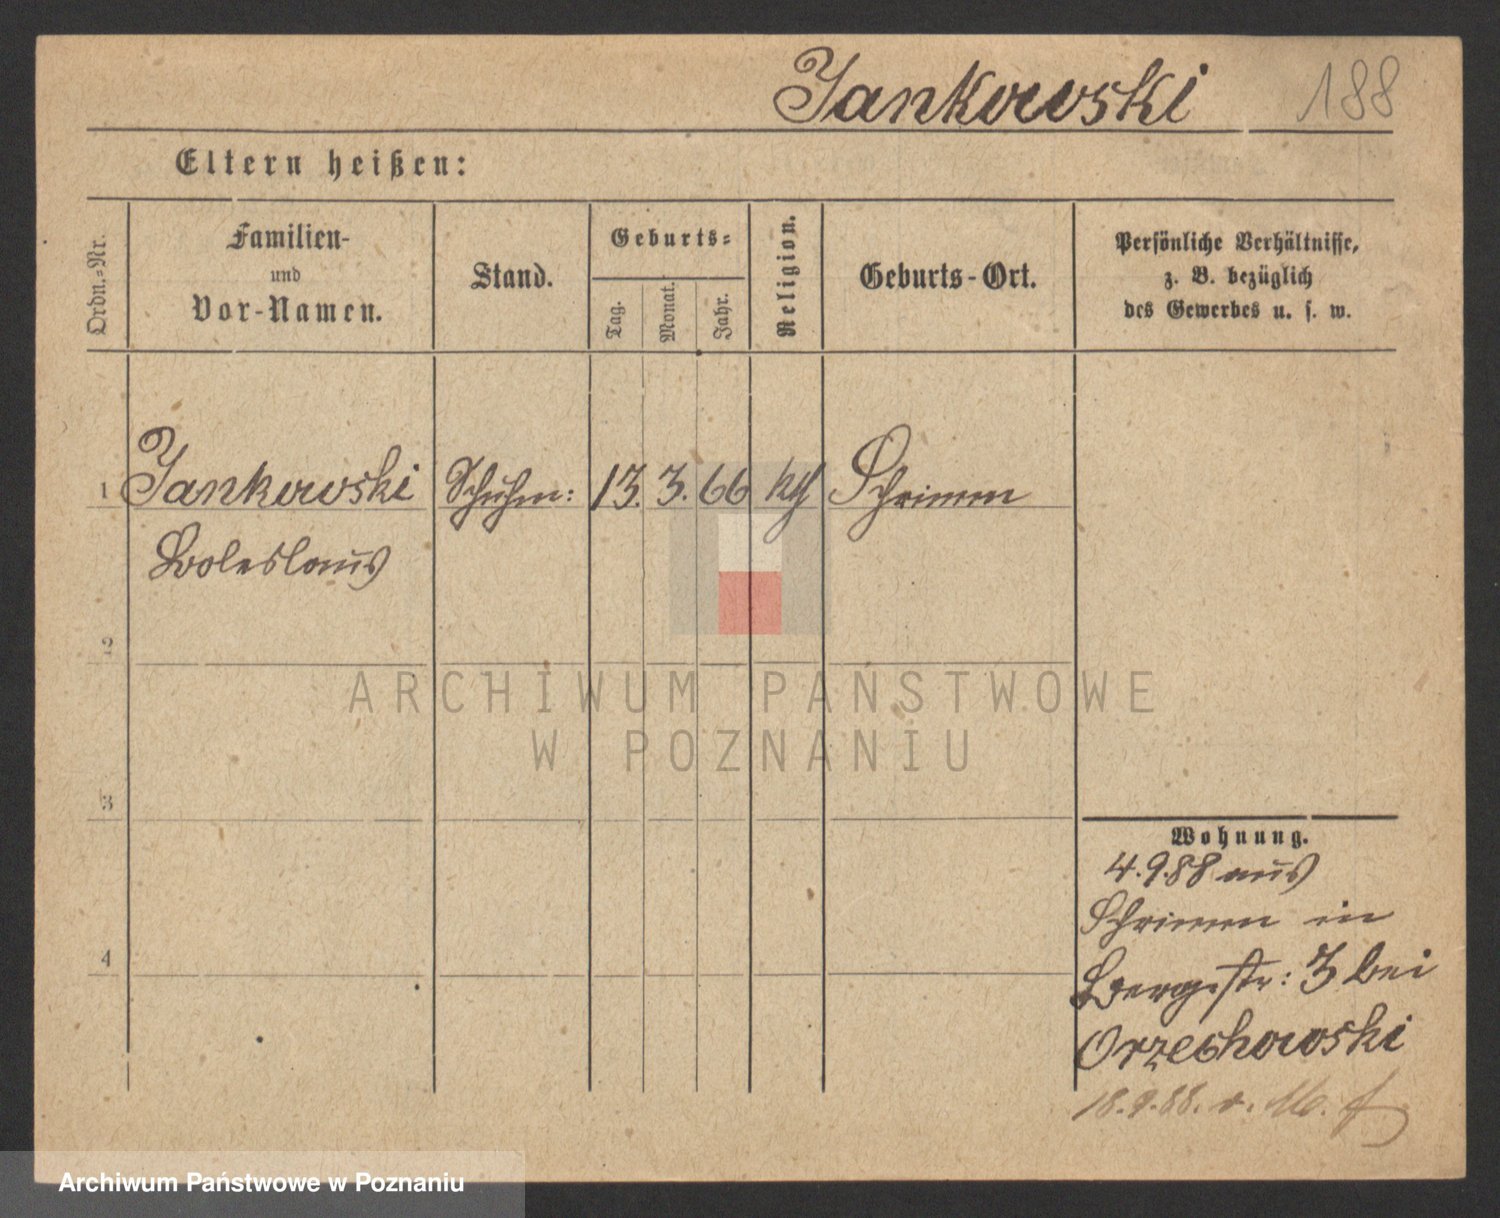 Jankowski 188
Eltern heißen:
Ordn.-Nr.
Familien-
und
Vor-Namen.
Stand.
Geburts-
Tag.
Monat.
Jahr.
Religion.
Geburts-Ort.
Persönliche Verhältnisse,
z. B. bezüglich
des Gewerbes u. s. w.
1 Jankowski Schuhm: 13. 3. 66 kth Schrimm
Boleslaus
2
3
4
Wohnung.
4.9.88 aus
Schrimm in
Bergstr: 3 bei
Orzechowski
18.9.88.
ARCHIWUM PAŃSTWOWE
W POZNANIU
Archiwum Państwowe w Poznaniu